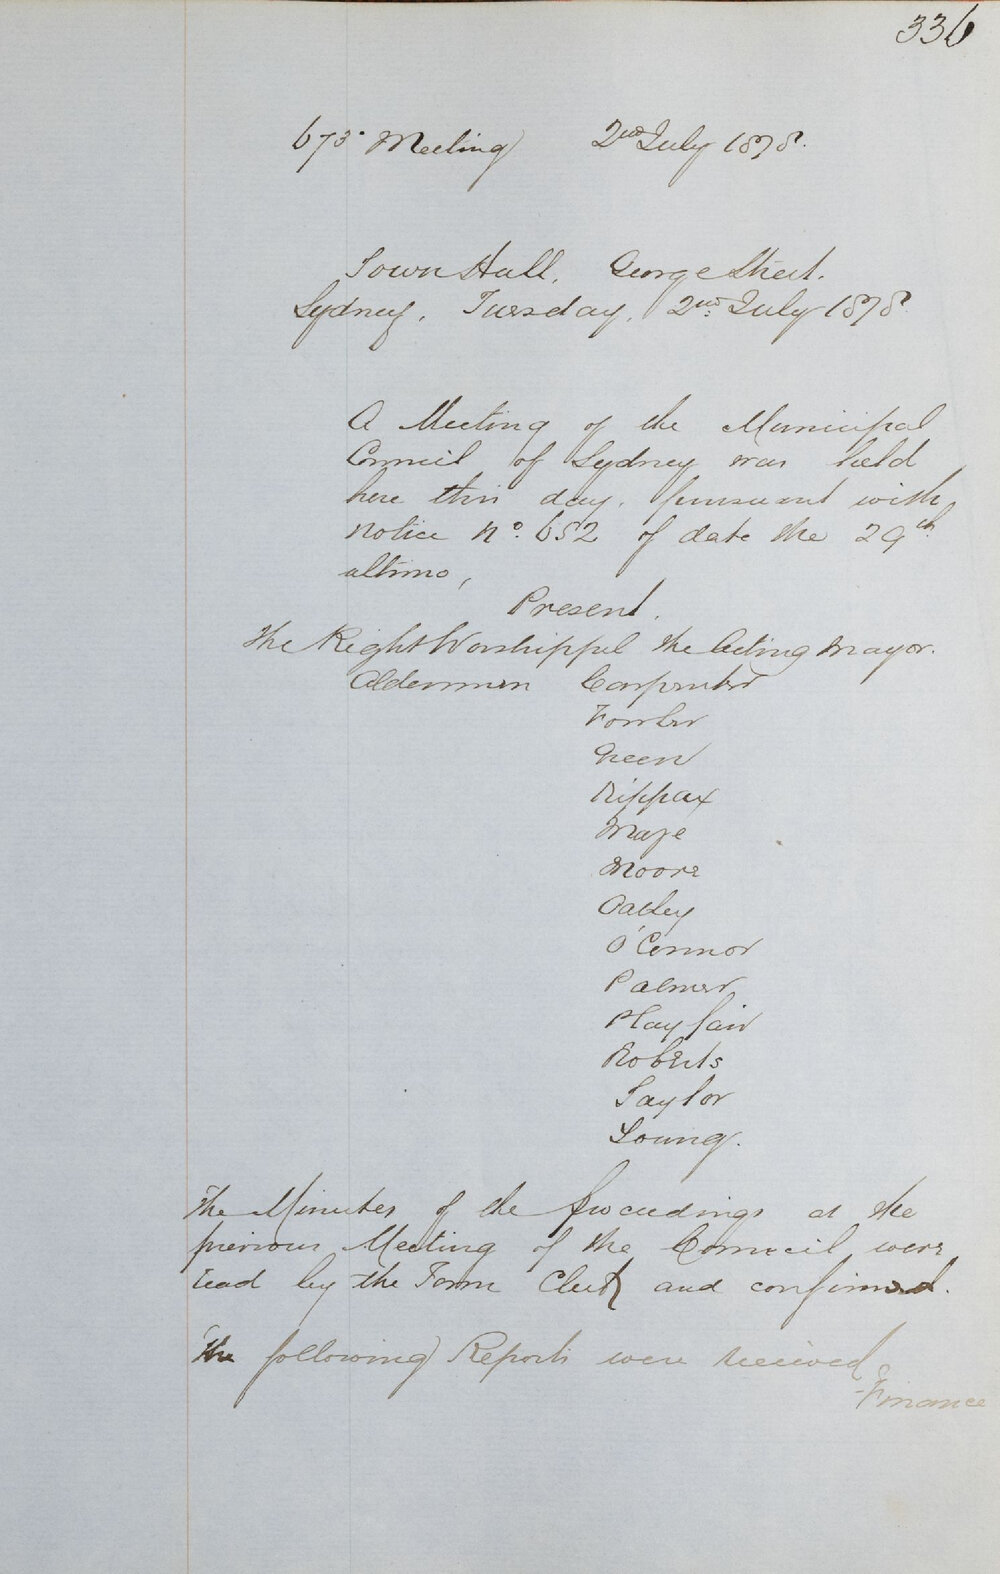 336
673. Meeting 2nd July 1878.
Town Hall, George Street.
Sydney, Tuesday, 2nd July 1878
A Meeting of the Municipal
Council of Sydney was held
here this day, pursuant with
notice No. 652 of date the 29th
ultimo,
Present.
The Right Worshipful the Acting Mayor.
Aldermen Carpenter
Fowler
Green
Kippax
Maze
Moore
Oatley
O'Connor
Palmer
Playfair
Roberts
Taylor
Young.
The Minutes of the Proceedings at the
previous Meeting of the Council were
read by the Town Clerk and confirmed.
The following Reports were received
Finance